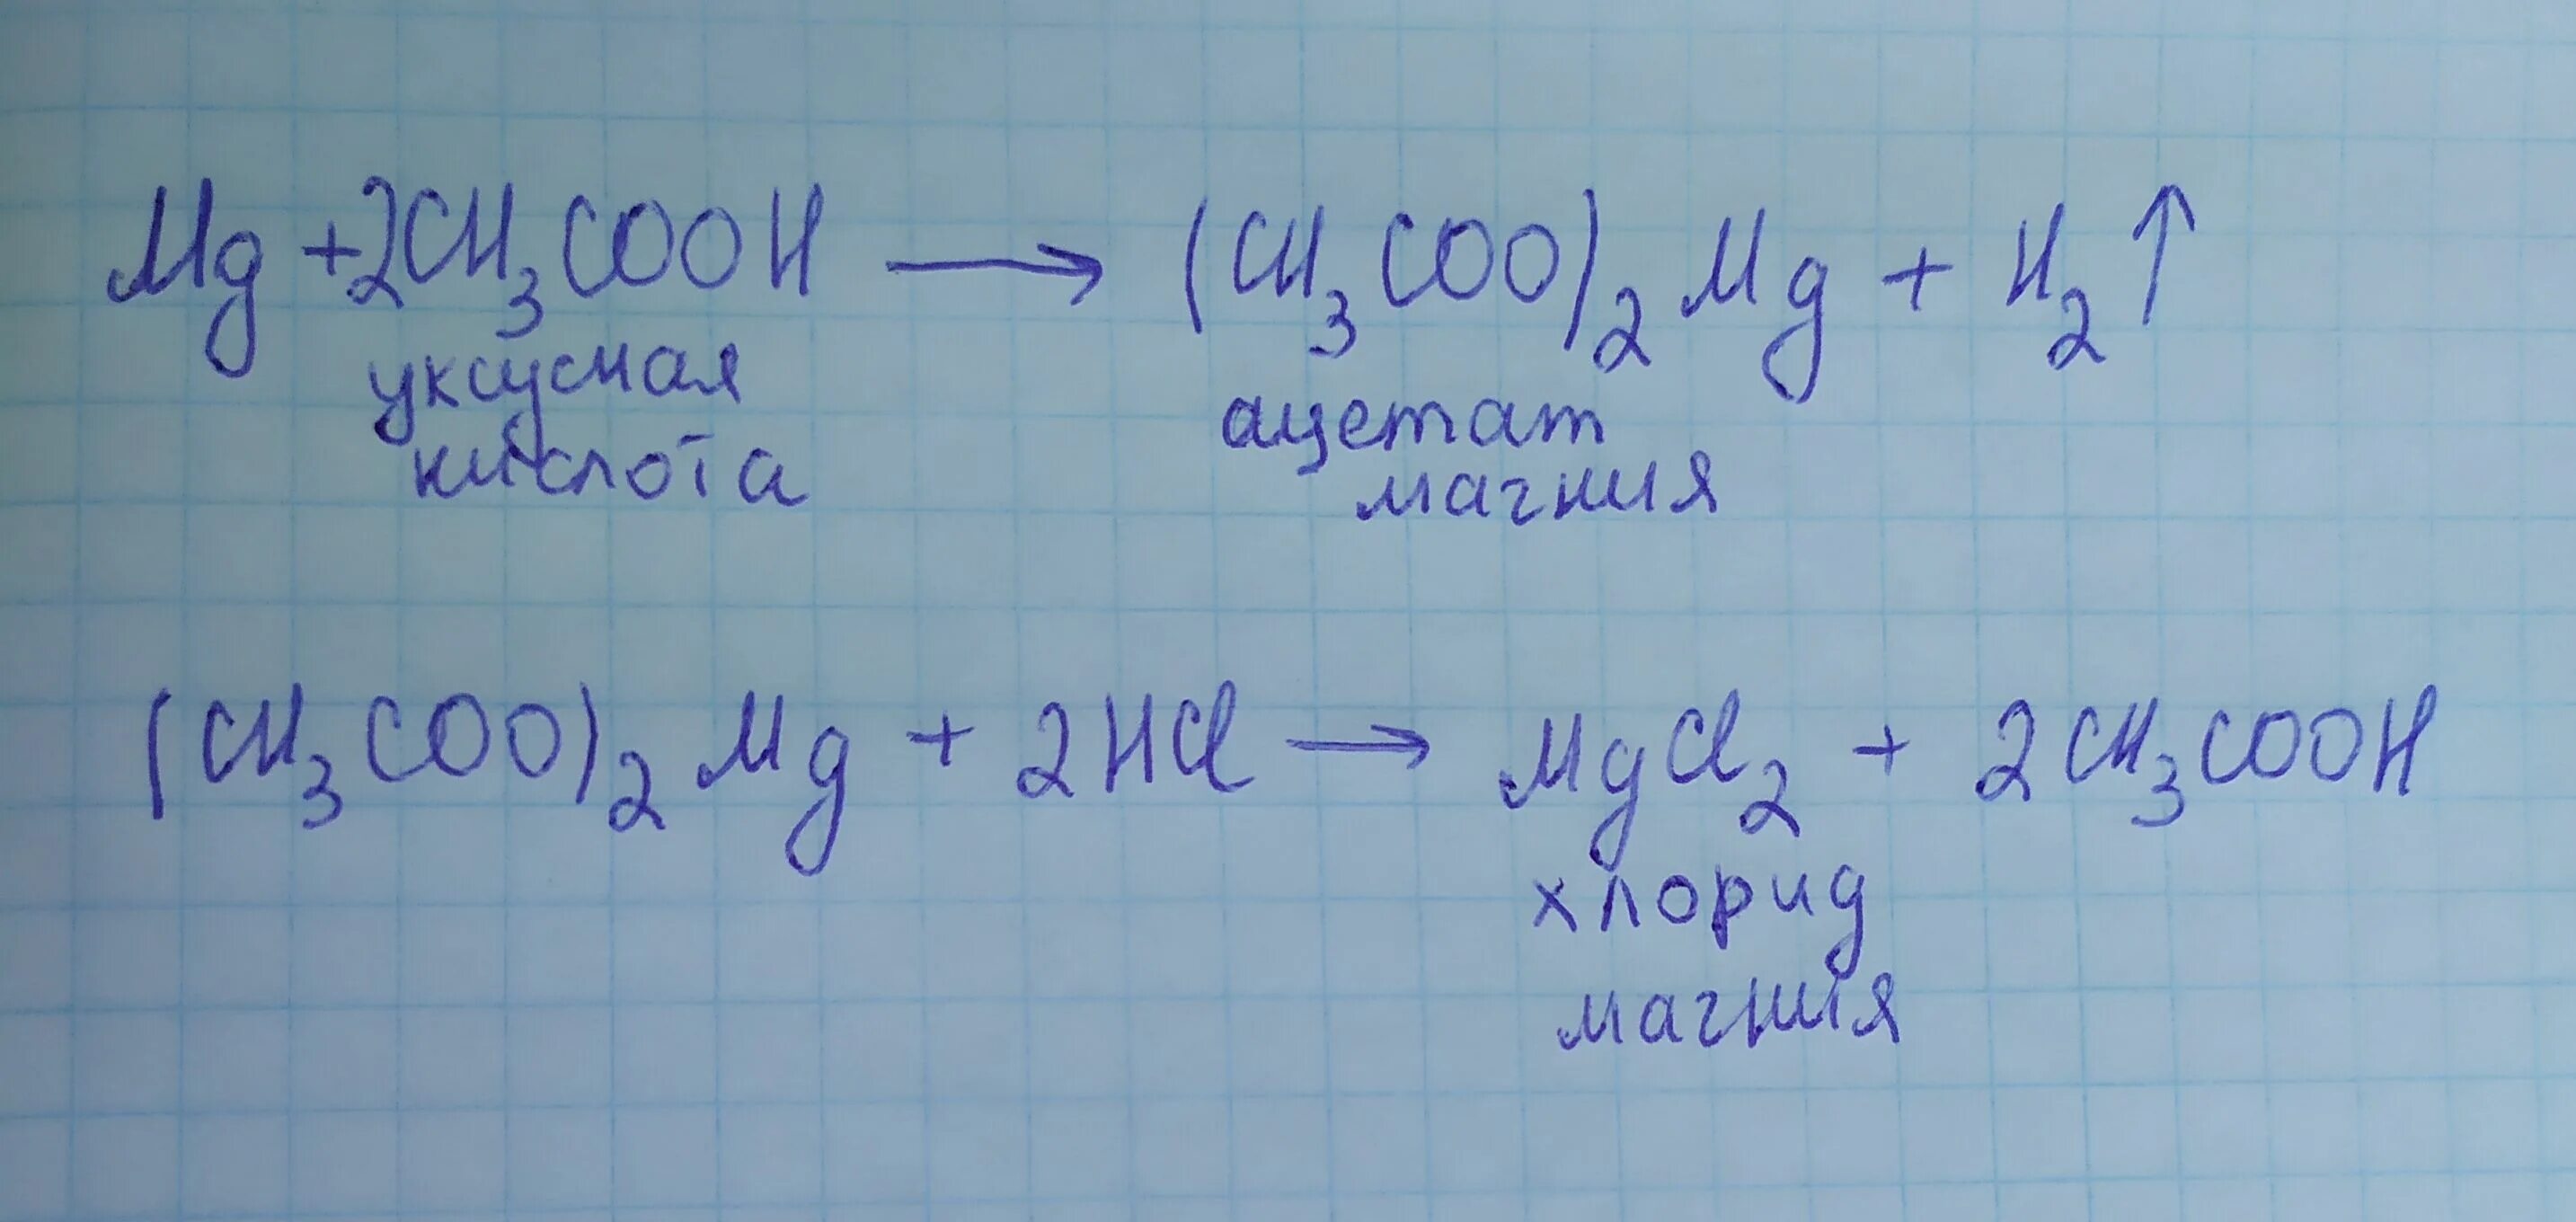 Mg + 2CH₃COOH ⟶ (CH₃COO)₂Mg + H₂↑
уксусная ацетат
кислота магния
(CH₃COO)₂Mg + 2HCl ⟶ MgCl₂ + 2CH₃COOH
хлорид
магния